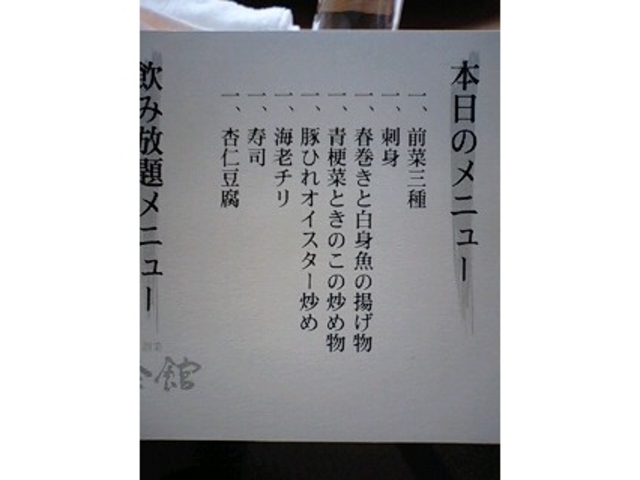 本日のメニュー
一、前菜三種
一、刺身
一、春巻きと白身魚の揚げ物
一、青梗菜ときのこの炒め物
一、豚ひれオイスター炒め
一、海老チリ
一、寿司
一、杏仁豆腐
飲み放題メニュー
館